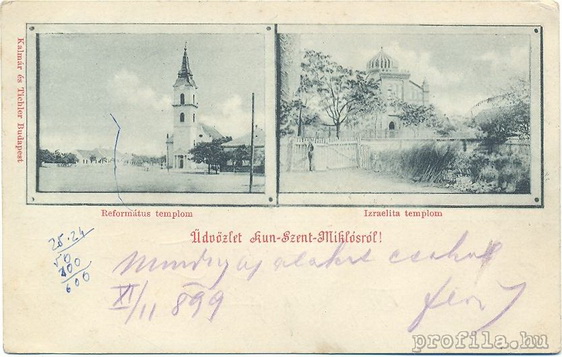 Kalmár és Tichler Budapest
Református templom
Izraelita templom
Üdvözlet Kun-Szent-Miklósról!
25.24
50
100
600
XI/11 899
profila.hu